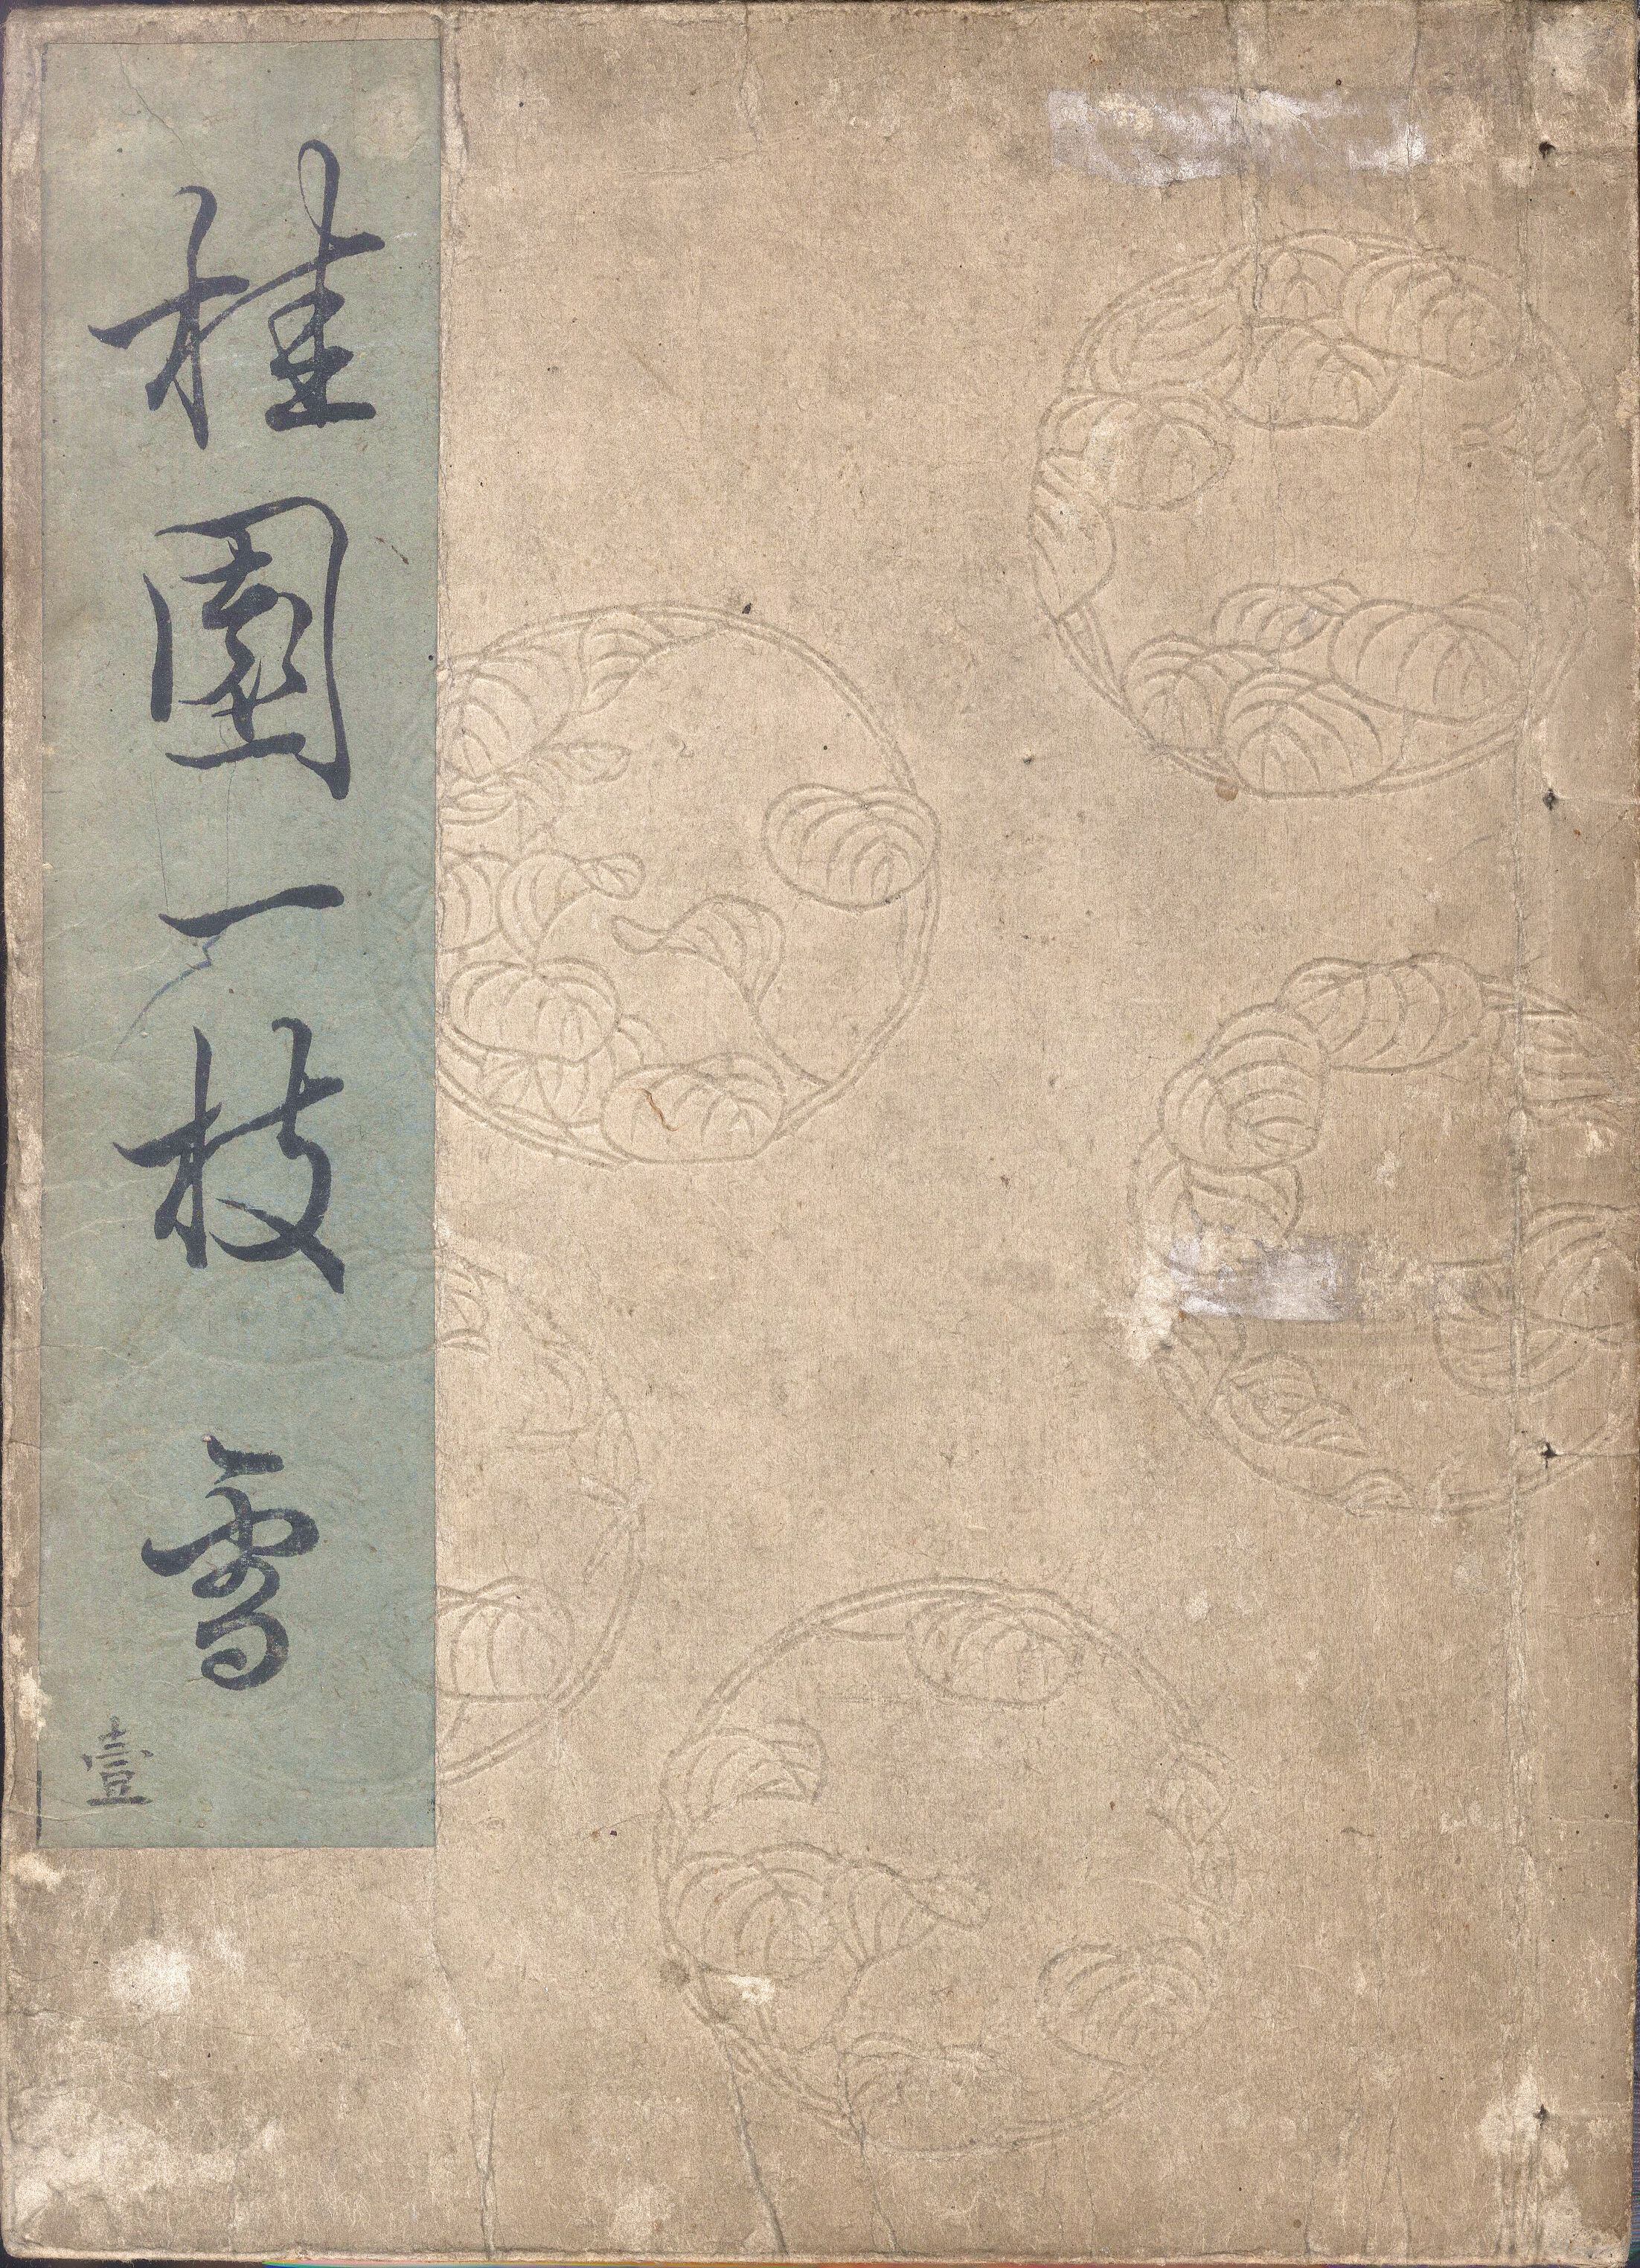 桂園一枝　雪
壹